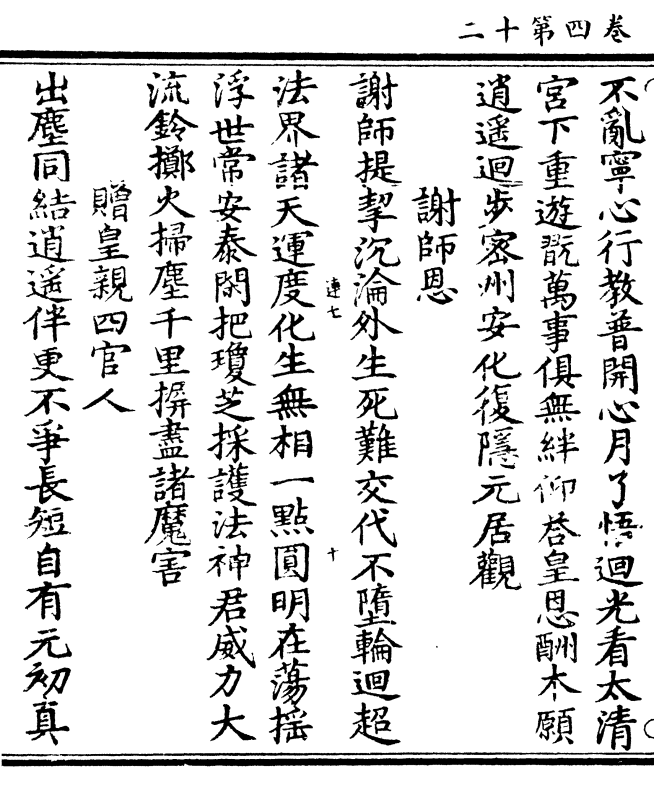 卷四第十二
不亂寧心行教普開心月了悟迴光看太清
宮下重遊翫萬事俱無絆仰荅皇恩酬本願
逍遥迴步密州安化復隱元居觀
謝師恩
謝師提挈沉淪外生死難交代不墮輪迴超
連七
十
法界諸天運度化生無相一點圓明在蕩揺
浮世常安泰閑把瓊芝採護法神君威力大
流鈴擲火掃塵千里摒盡諸魔害
贈皇親四官人
出塵同結逍遥伴更不爭長短自有元初真